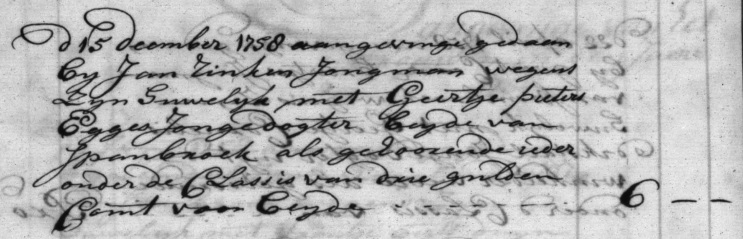 d 15 december 1758 aangevinge gedaan
by Jan Tinkes Jongman wegens
Zyn huwelyk met Geertje pieters
Egges Jongedogter beyde van
Spanbroek als gehoorende ieder
onder de Classis van drie gulden
komt voor beyde 6 – –